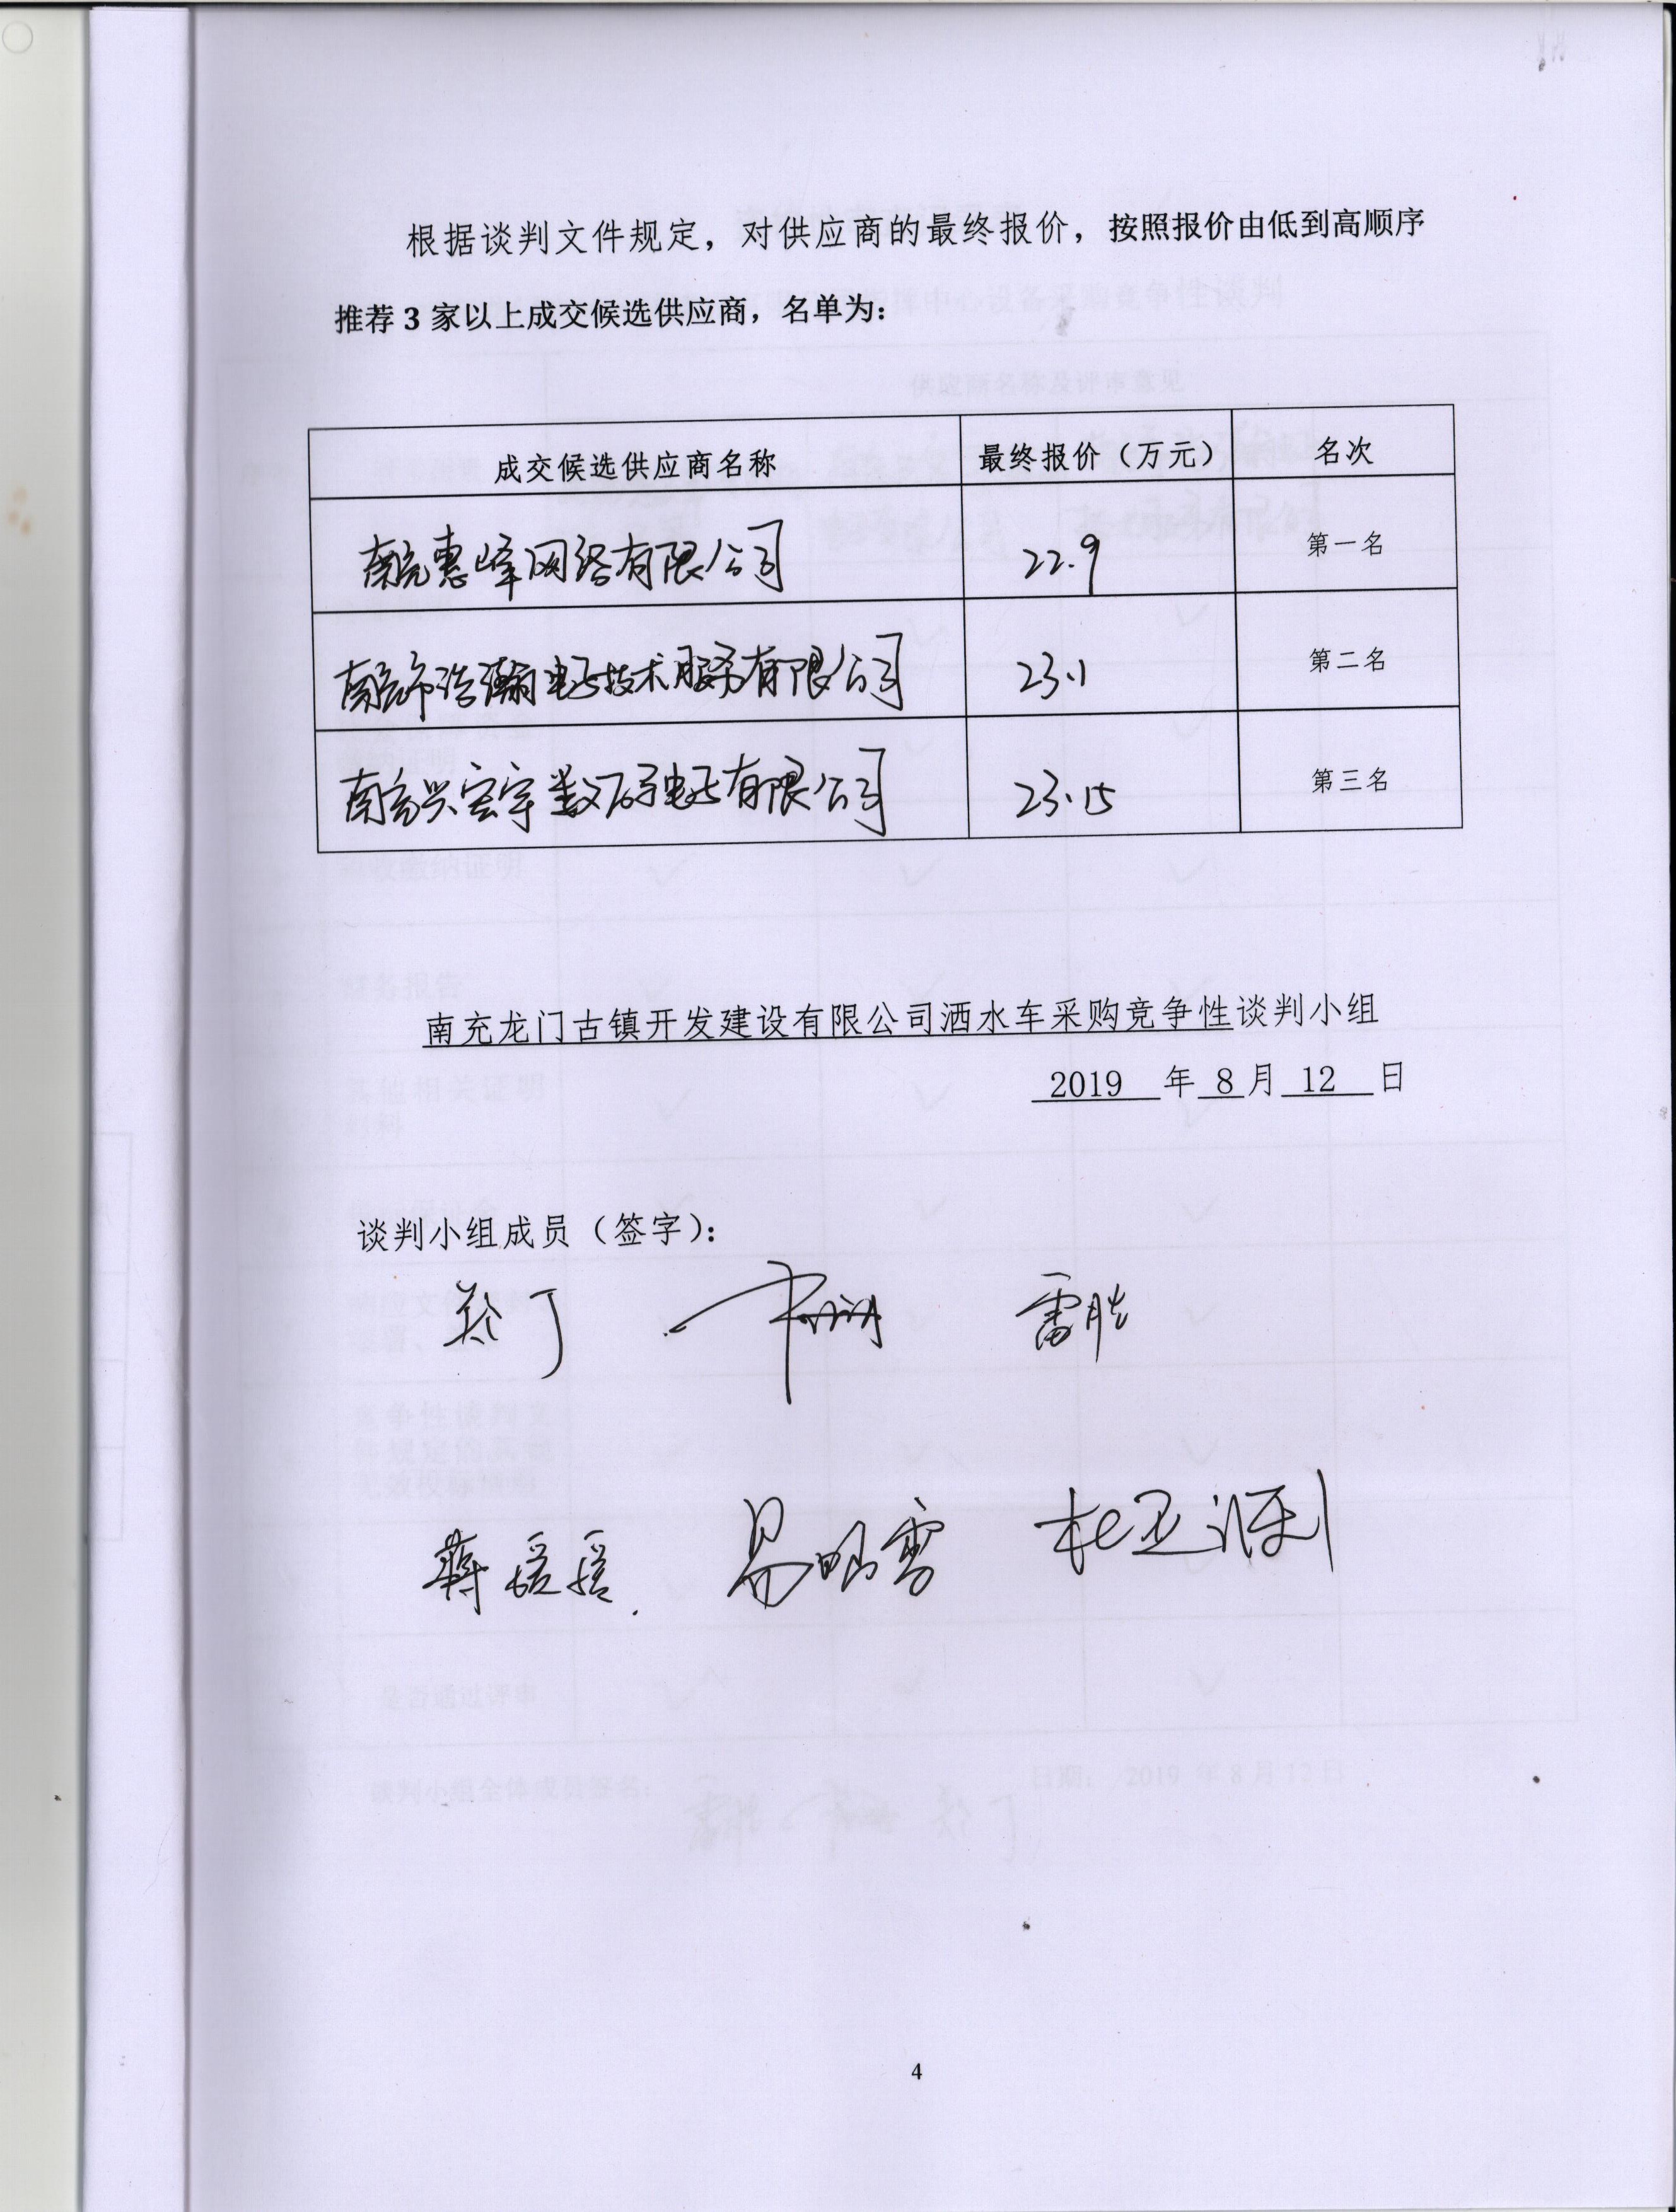 根据谈判文件规定，对供应商的最终报价，按照报价由低到高顺序
推荐 3 家以上成交候选供应商，名单为：
成交候选供应商名称 最终报价（万元） 名次
南充惠峰网络有限公司 22.9 第一名
南充市浩瀚电子技术服务有限公司 23.1 第二名
南充兴宏宇数码电子有限公司 23.15 第三名
南充龙门古镇开发建设有限公司洒水车采购竞争性谈判小组
2019 年 8 月 12 日
谈判小组成员（签字）：
郑丁 雷胜
蒋媛媛
4